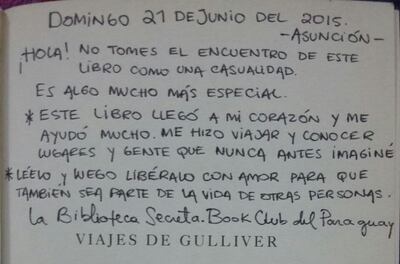 DOMINGO 21 DE JUNIO DEL 2015.
-ASUNCIÓN-
¡HOLA! NO TOMES EL ENCUENTRO DE ESTE
LIBRO COMO UNA CASUALIDAD.
ES ALGO MUCHO MÁS ESPECIAL.
*ESTE LIBRO LLEGÓ A MI CORAZÓN Y ME
AYUDÓ MUCHO. ME HIZO VIAJAR Y CONOCER
LUGARES Y GENTE QUE NUNCA ANTES IMAGINÉ
*LÉELO Y LUEGO LIBÉRALO CON AMOR PARA QUE
TAMBIÉN SEA PARTE DE LA VIDA DE OTRAS PERSONAS.
La Biblioteca Secreta. Book Club del Paraguay
VIAJES DE GULLIVER